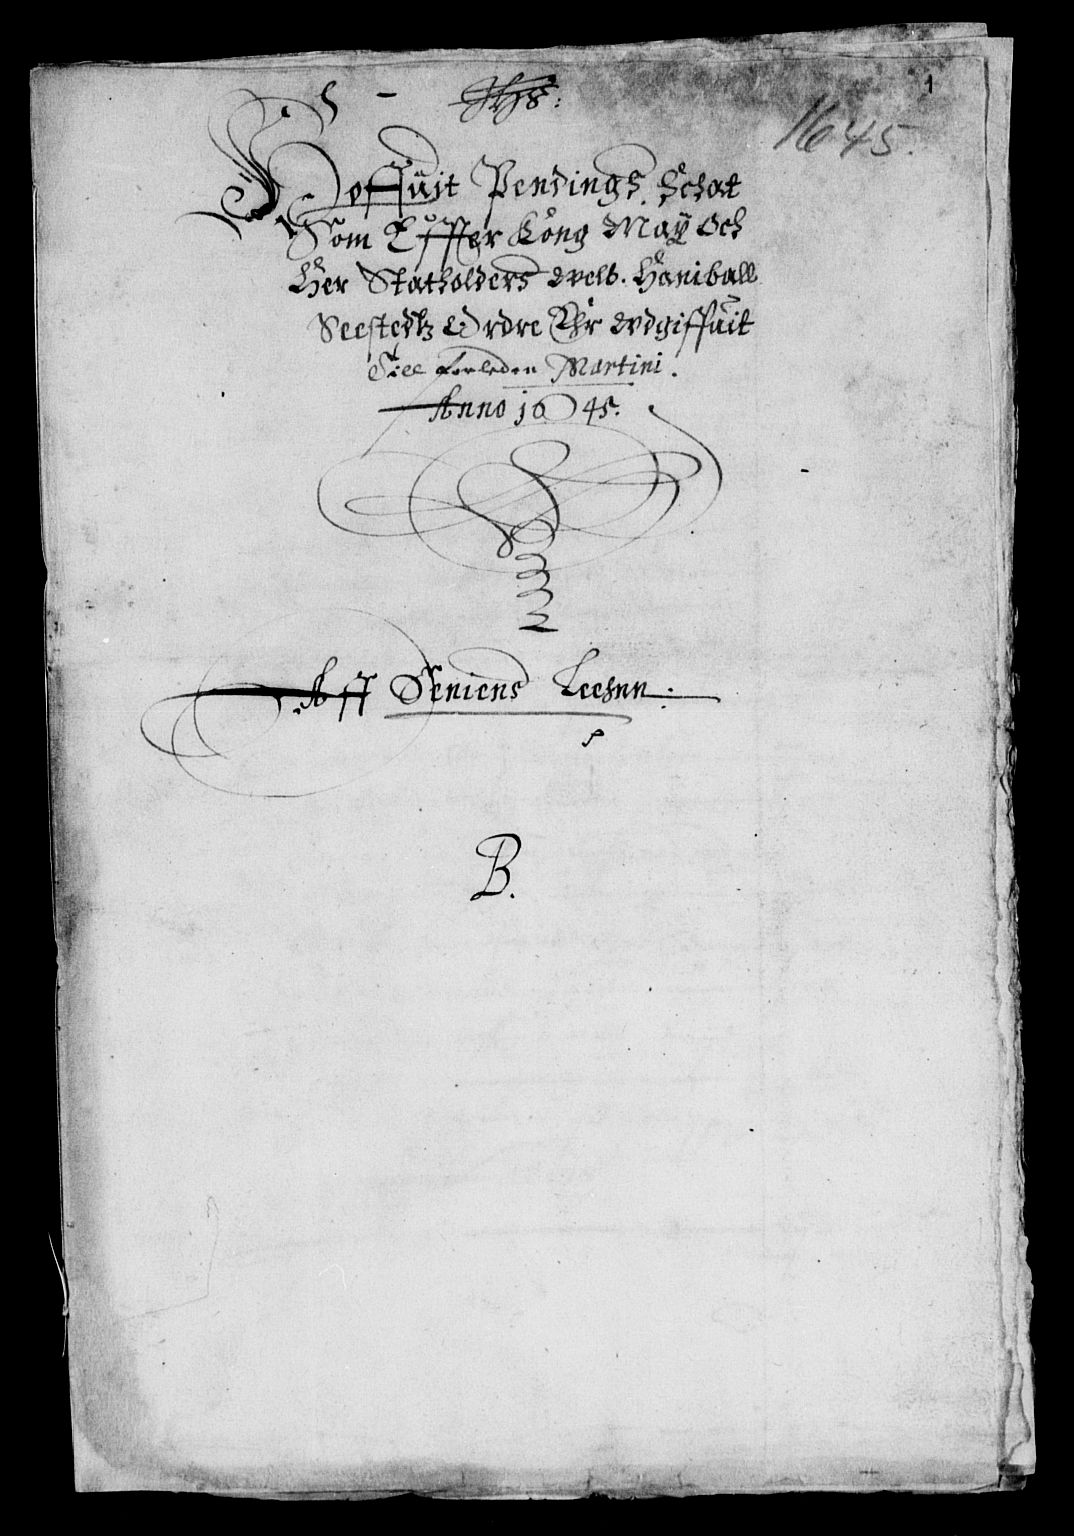 1
Jhs:
1645.
Hoffuit Pendings Schat
Som Effter Kong: May: Och
Her Statholders Welb. Haniball
Seestedtz Ordre Ehr Wdgiffuit
Till forleden Martini.
Anno 1645.
Aff Seniens Leehnn:
B.